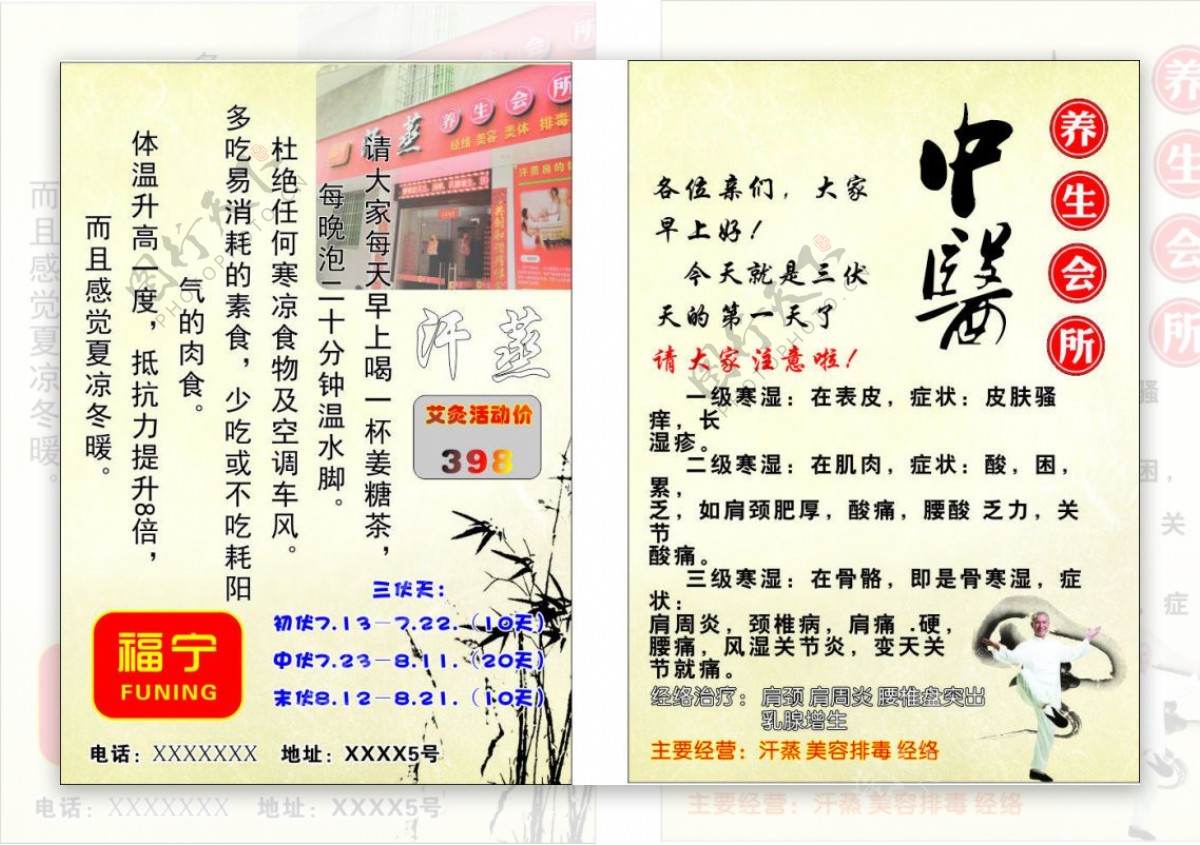 请大家每天早上喝一杯姜糖茶，
每晚泡二十分钟温水脚。
杜绝任何寒凉食物及空调车风。
多吃易消耗的素食，少吃或不吃耗阳
气的肉食。
体温升高一度，抵抗力提升8倍，
而且感觉夏凉冬暖。
汗蒸
养生会所
经络 美容 美体 排毒
汗蒸
艾灸活动价
398
三伏天：
初伏7.13—7.22.（10天）
中伏7.23—8.11.（20天）
末伏8.12—8.21.（10天）
福宁
FUNING
电话：XXXXXXX 地址：XXXX5号
中醫
养生会所
各位亲们，大家
早上好！
今天就是三伏
天的第一天了
请大家注意啦！
一级寒湿：在表皮，症状：皮肤骚
痒，长
湿疹。
二级寒湿：在肌肉，症状：酸，困，
累，
乏，如肩颈肥厚，酸痛，腰酸 乏力，关
节
酸痛。
三级寒湿：在骨骼，即是骨寒湿，症
状：
肩周炎，颈椎病，肩痛 .硬，
腰痛，风湿关节炎，变天关
节就痛。
经络治疗：肩颈 肩周炎 腰椎盘突出
乳腺增生
主要经营：汗蒸 美容排毒 经络